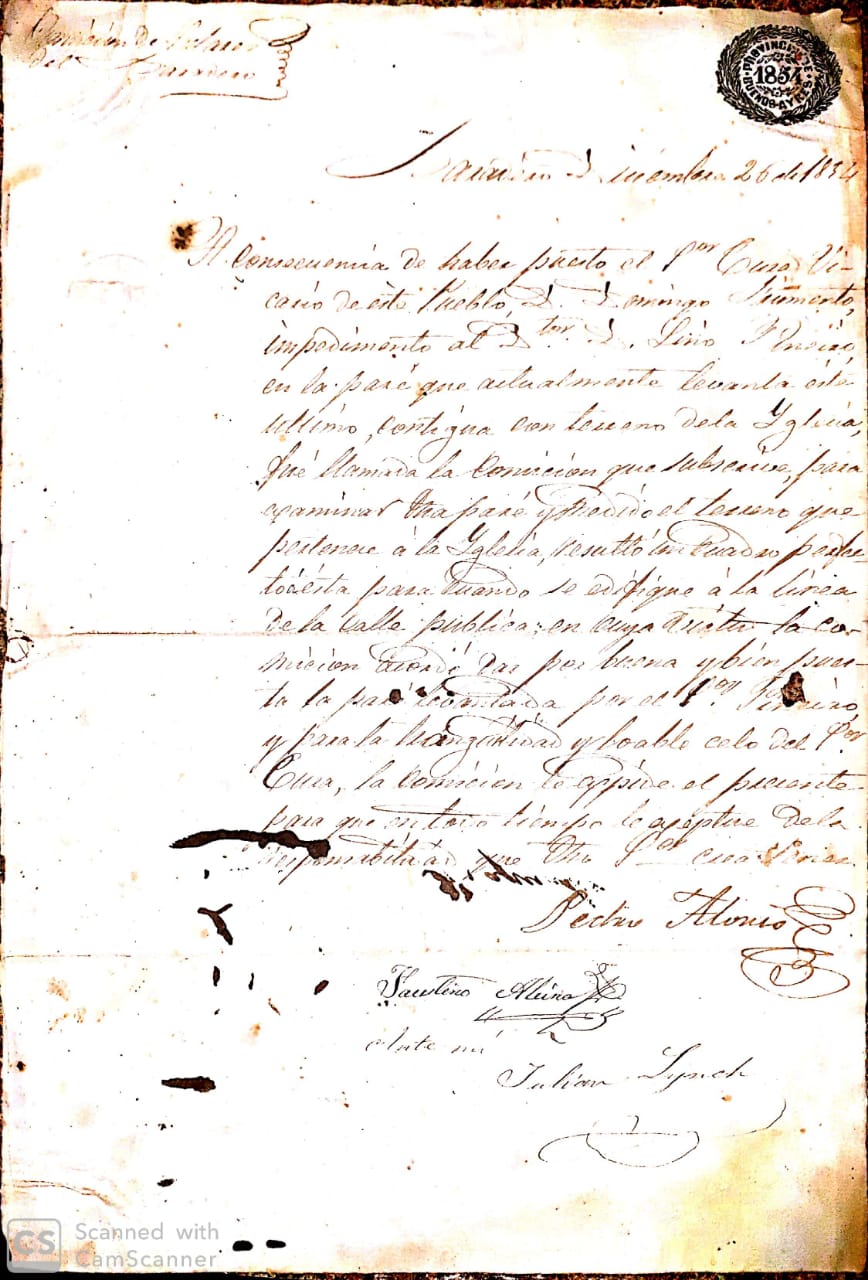 Comicion de Solares
del Baradero
PROVINCIA DE
1854
BUENOS-AYRES
Baradero Diciembre 26 de 1854
A consecuencia de haber puesto el Sor Cura Vi-
cario de este Pueblo, D. Domingo
impedimento al Dtor. D. Lino Piñeiro,
en la paré que actualmente levanta éste
ultimo, contigua con terreno de la Yglecia,
fué llamada la Comicion que subscrive, para
examinar dha paré y medido el terreno que
pertenece á la Yglecia, resultó un cuadro perfec-
to ésta para cuando se edifique á la linea
de la calle pública; en cuya la co-
micion acordó dar por buena y bien pues-
ta la paré levantada por el Sor. Piñeiro
y para la tranquilidad y loable celo del Sor
Cura, la Comicion le espide el presente
para que en todo tiempo le aseptue de la
responsabilidad que dho Sor crea
Pedro Alonso
Faustino Alsina
Ante mi
Julian Lynch
CS Scanned with
CamScanner